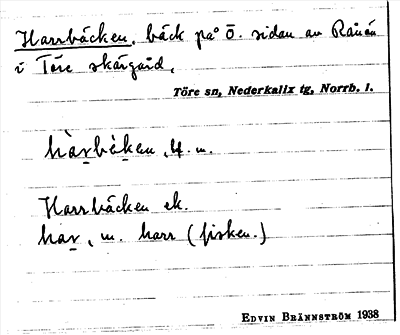 Harrbäcken, bäck på ö. sidan av Rånön
i Töre skärgård.
Töre sn, Nederkalix tg, Norrb. l.
hàr̲bèk̲en, tf. m.
Harrbäcken ek.
har̲, m. harr (fisken.)
EDVIN BRÄNNSTRÖM 1938